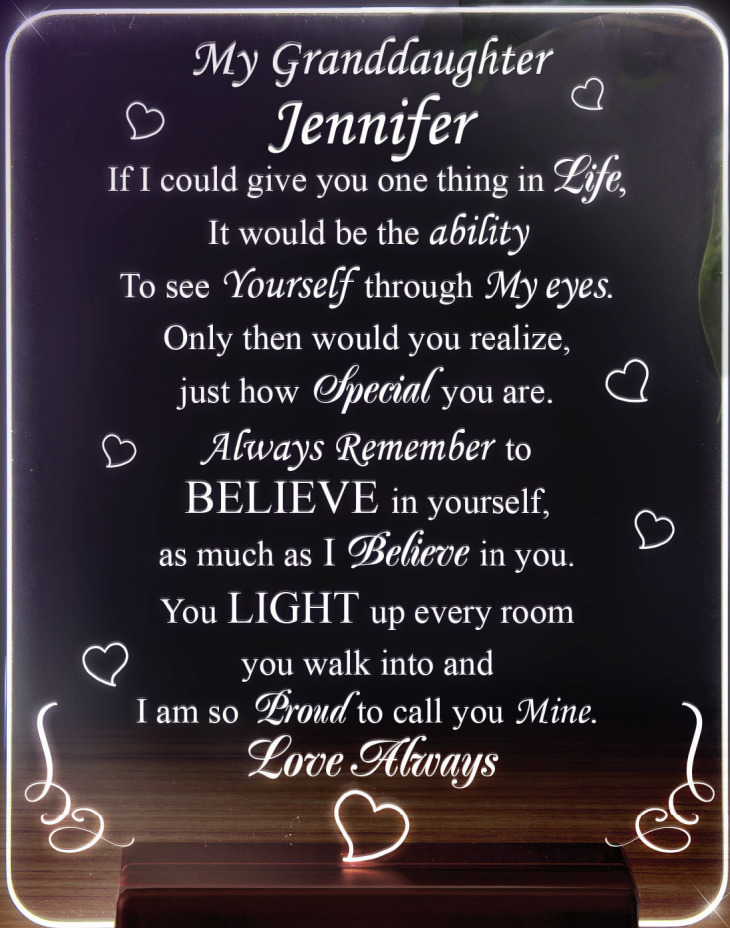 My Granddaughter
Jennifer
If I could give you one thing in Life,
It would be the ability
To see Yourself through My eyes.
Only then would you realize,
just how Special you are.
Always Remember to
BELIEVE in yourself,
as much as I Believe in you.
You LIGHT up every room
you walk into and
I am so Proud to call you Mine.
Love Always